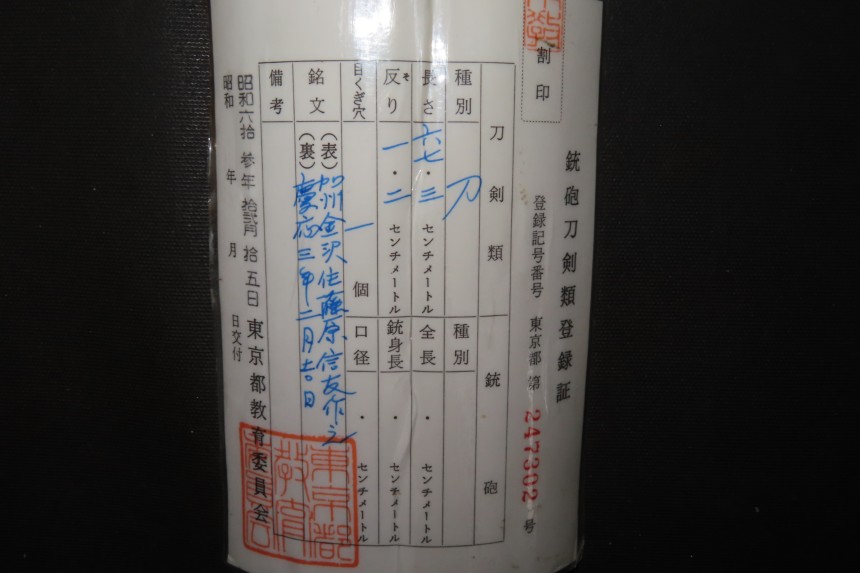 銃砲刀剣類登録証
割印
登録記号番号 東京都 第 247302 号
刀剣類
銃砲
種別 刀
種別
長さ 六七・三 センチメートル
全長 ・ センチメートル
反り そ 一・二 センチメートル
銃身長 ・ センチメートル
目くぎ穴 一個
口径 ・ センチメートル
銘文 (表) 加州金沢住藤原信友作之
(裏) 慶応三年二月吉日
備考
昭和六拾参年拾弐月拾五日
昭和 年 月 日交付
東京都教育委員会